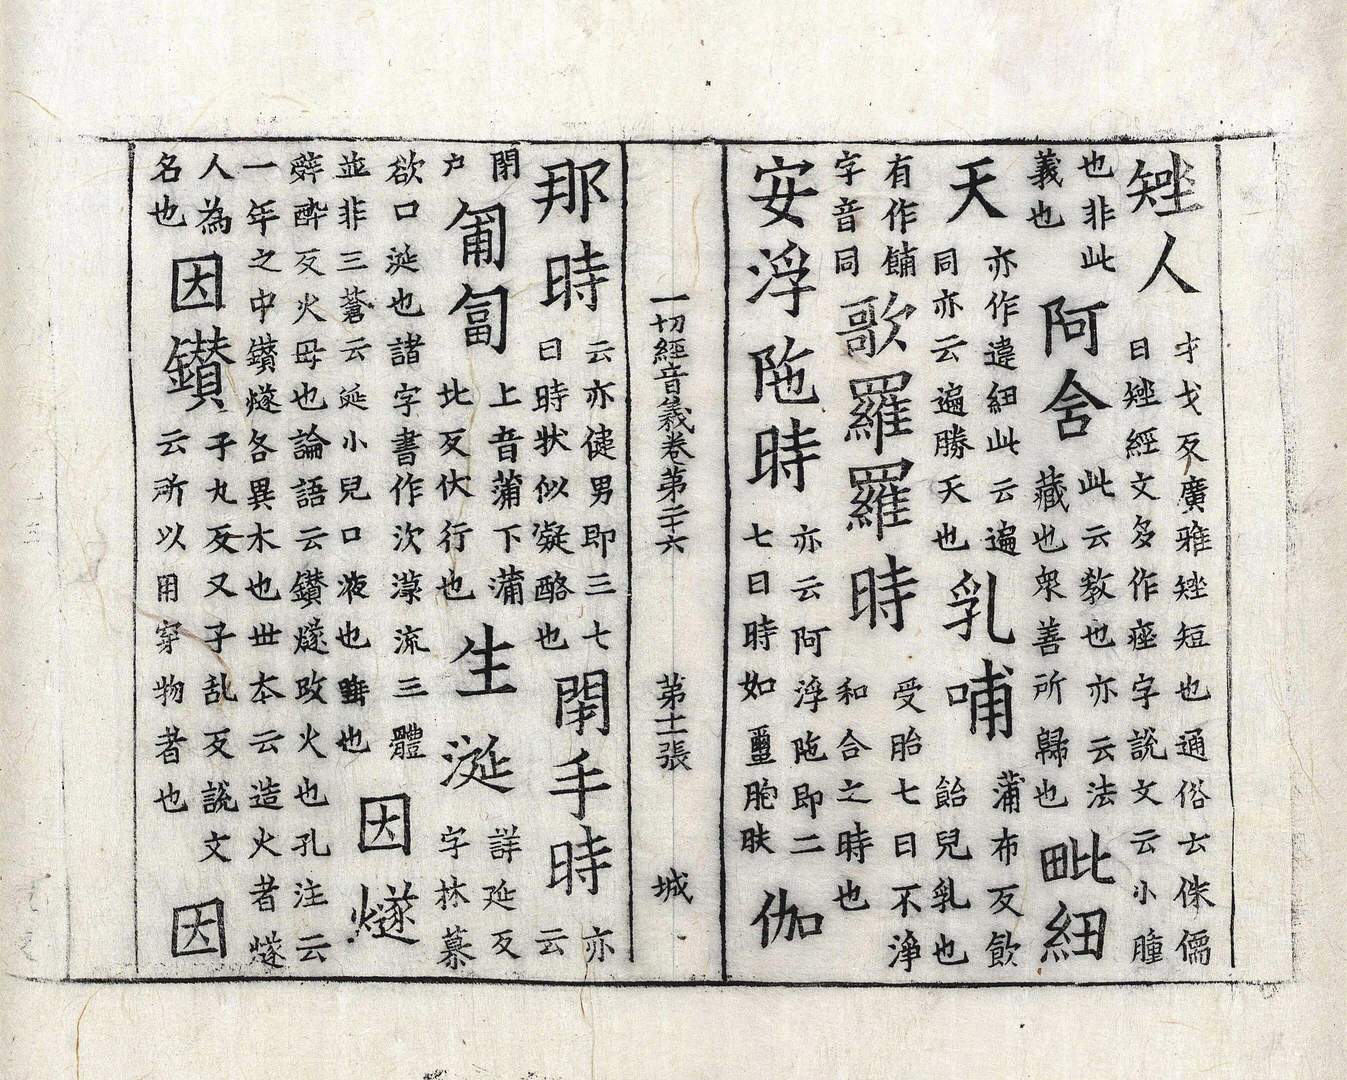 矬人
才戈反廣雅矬短也通俗云侏儒
曰矬經文多作痤字說文云小腫
也非此
義也
阿含
此云教也亦云法
藏也衆善所歸也
毗紐
天
亦作違紐此云遍
同亦云遍勝天也
乳哺
蒲布反飲
飴兒乳也
有作餔
字音同
歌羅羅時
受胎七日不淨
和合之時也
安浮陁時
亦云阿浮陁即二
七日時如璽胞肤
伽
一切經音義卷第二十六 第十一張 城
那時
云亦健男即三七
日時狀似凝酪也
閉手時
亦
云
閉
户
匍匐
上音蒲下蒲
北反伏行也
生涎
詳延反
字林慕
欲口涎也諸字書作次流三體
並非三蒼云涎小兒口液也也
因燧
辤醉反火母也論語云鑽燧改火也孔注云
一年之中鑽燧各異木也世本云造火者燧
人為
名也
因鑽
子丸反又子乱反說文
云所以用穿物者也
因